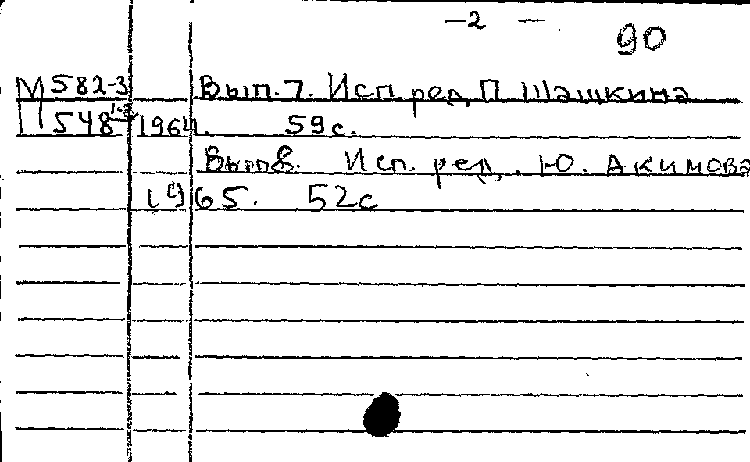 —2 —
90
М 582-3 Вып. 7. Исп. ред. П Шашкина
П 548 1964. 59 с.
Вып 8. Исп. ред. Ю. Акимова
1965. 52 с